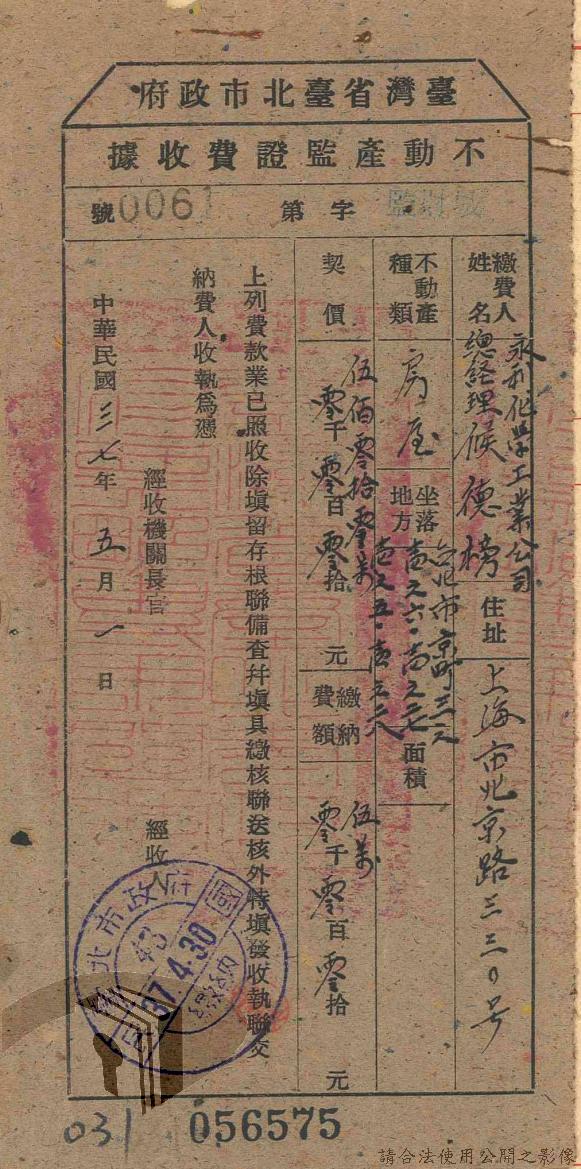 臺灣省臺北市政府
不動產監證費收據
字第0061號
繳費人姓名
永利化学工業公司
總経理候德榜
住址
上海市北京路三三〇号
不動產種類
房屋
坐落地方
台北市京町三
面積
契價
伍佰零拾零萬
零千零百零拾元
繳納費額
伍萬
零千零百零拾元
上列費款業已照收除填留存根聯備查幷填具繳核聯送核外特填發收執聯交
納費人收執爲憑
經收機關長官
經收人
中華民國三七年五月一日
北市政府
43
37.4.30
031
056575
請合法使用公開之影像